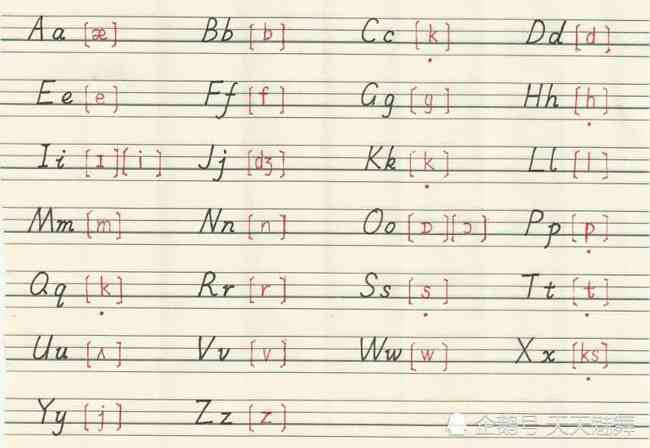 Aa [æ] Bb [b] Cc [k] Dd [d]
Ee [e] Ff [f] Gg [g] Hh [h]
Ii [ɪ][i] Jj [dʒ] Kk [k] Ll [l]
Mm [m] Nn [n] Oo [ɒ][ɔ] Pp [p]
Qq [k] Rr [r] Ss [s] Tt [t]
Uu [ʌ] Vv [v] Ww [w] Xx [ks]
Yy [j] Zz [z]
企鹅号 天天